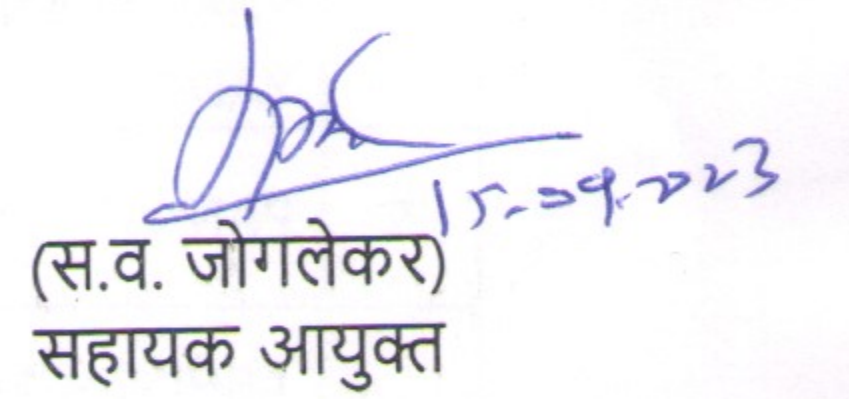 15-09-2023
(स.व. जोगलेकर)
सहायक आयुक्त